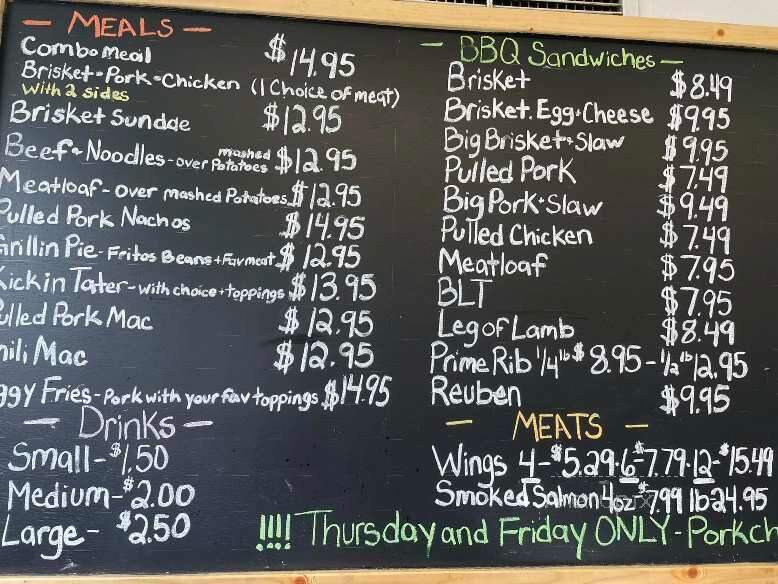 — MEALS —
Combo Meal $14.95
Brisket-Pork-Chicken (1 Choice of meat)
with 2 sides
Brisket Sundae $12.95
Beef & Noodles - over mashed Potatoes $12.95
Meatloaf - over mashed Potatoes $12.95
Pulled Pork Nachos $14.95
Grillin Pie - Fritos Beans + Fav meat $12.95
Kickin Tater - with choice + toppings $13.95
Pulled Pork Mac $12.95
hili Mac $12.95
ggy Fries - Pork with your fav toppings $14.95
— Drinks —
Small - $1.50
Medium - $2.00
Large - $2.50
— BBQ Sandwiches —
Brisket $8.49
Brisket. Egg + Cheese $9.95
Big Brisket + Slaw $9.95
Pulled Pork $7.49
Big Pork + Slaw $9.49
Pulled Chicken $7.49
Meatloaf $7.95
BLT $7.95
Leg of Lamb $8.49
Prime Rib 1/4 lb $8.95 - 1/2 lb 12.95
Reuben $9.95
— MEATS —
Wings 4 - $5.29 - 6 - $7.79 - 12 - $15.49
Smoked Salmon 4oz $7.99 lb 24.95
!!!! Thursday and Friday ONLY - Porkch